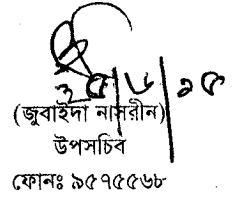 ২৫/৬/১৫
(জুবাইদা নাসরীন)
উপসচিব
ফোনঃ ৯৫৭৫৫৬৮